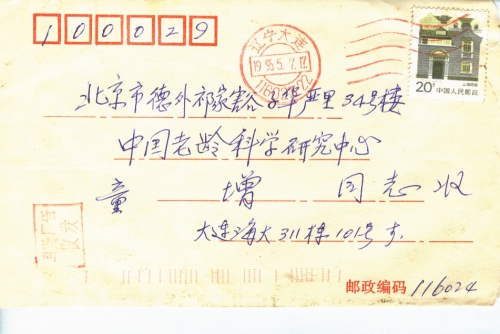 100029
辽宁大连
1995.5.7.17
20分 中国人民邮政
北京市德外祁家豁子华严里34号楼
中国老龄科学研究中心
童 增 同志收
大连海大311栋101号
邮政编码 116024